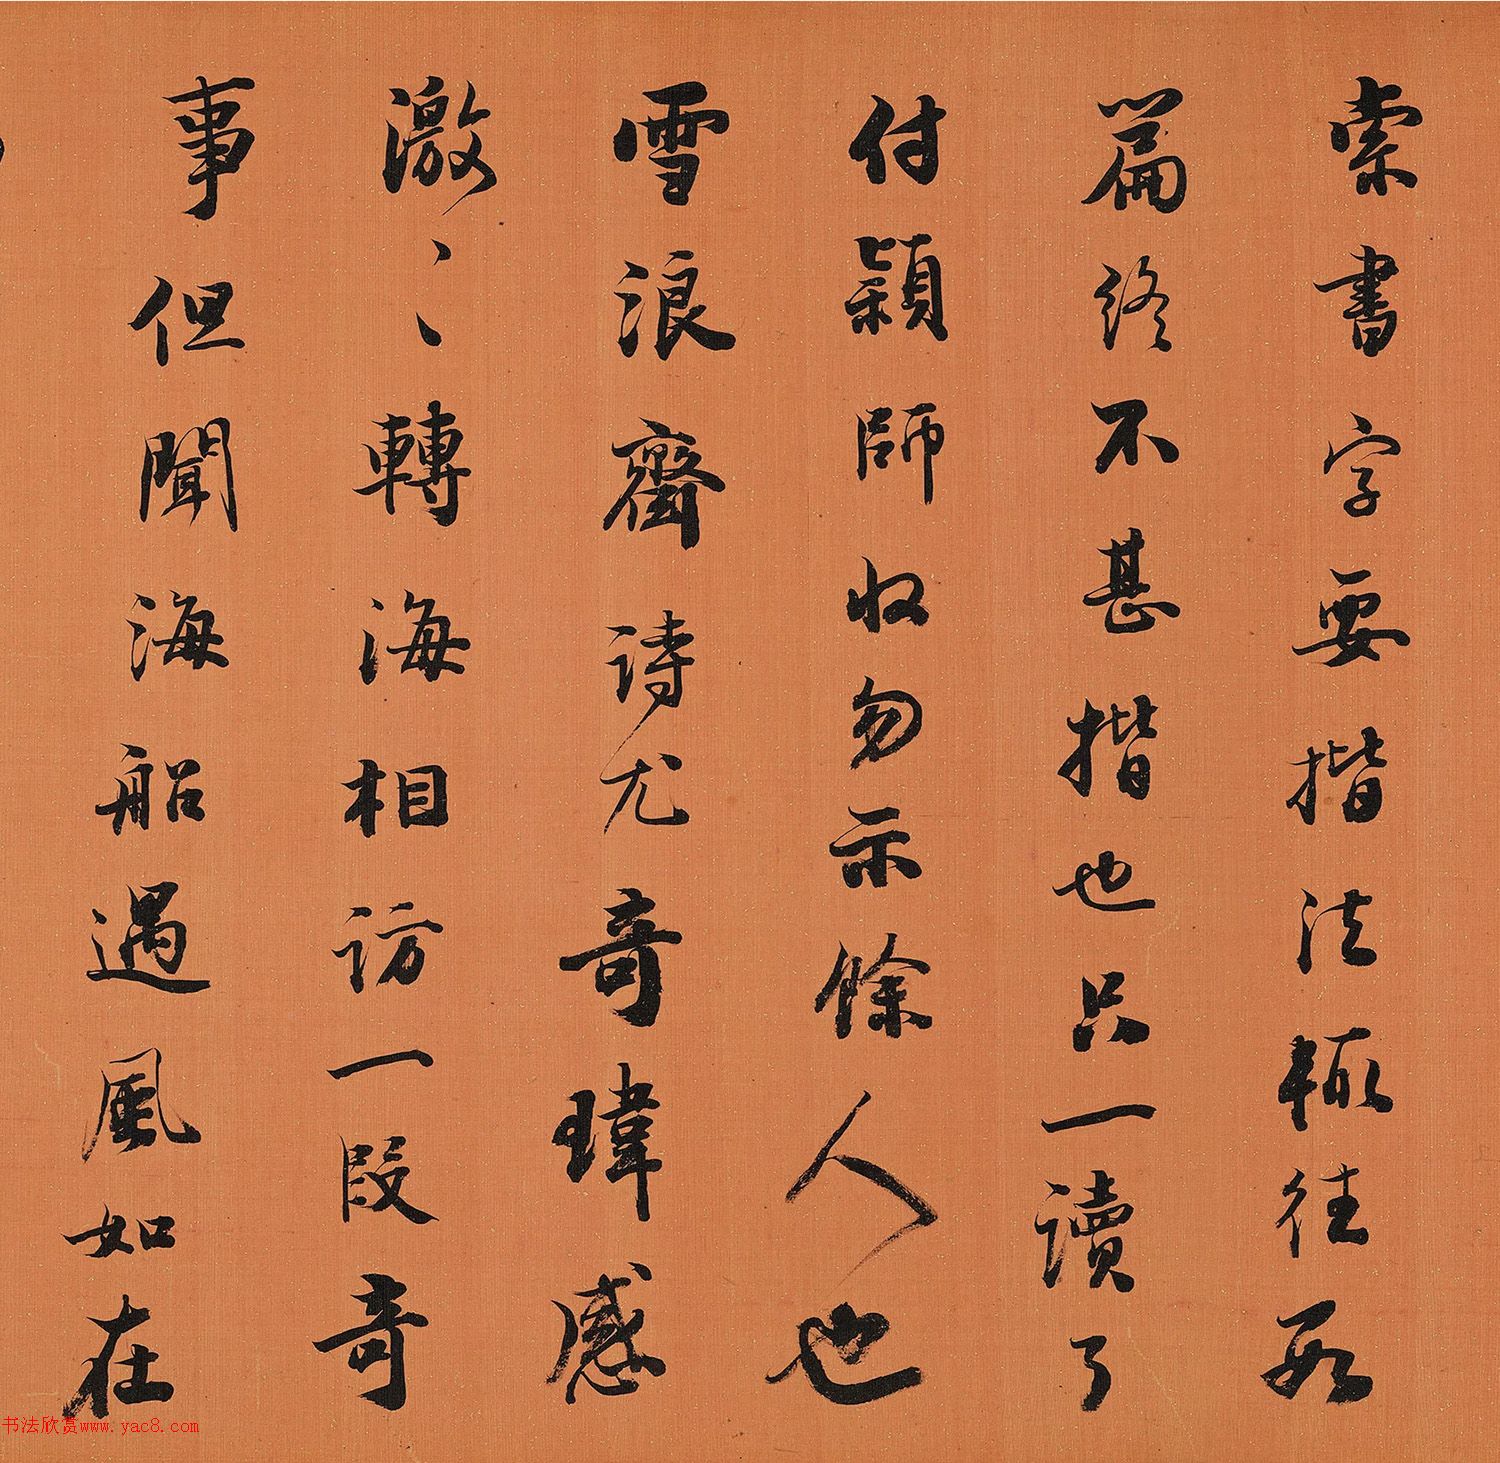 索書字要揩法輒往數
篇終不甚揩也只一讀了
付穎師收勿示餘人也
雪浪齋詩尤奇瑋感
激〻轉海相訪一段奇
事但聞海船遇風如在
书法欣赏www.yac8.com